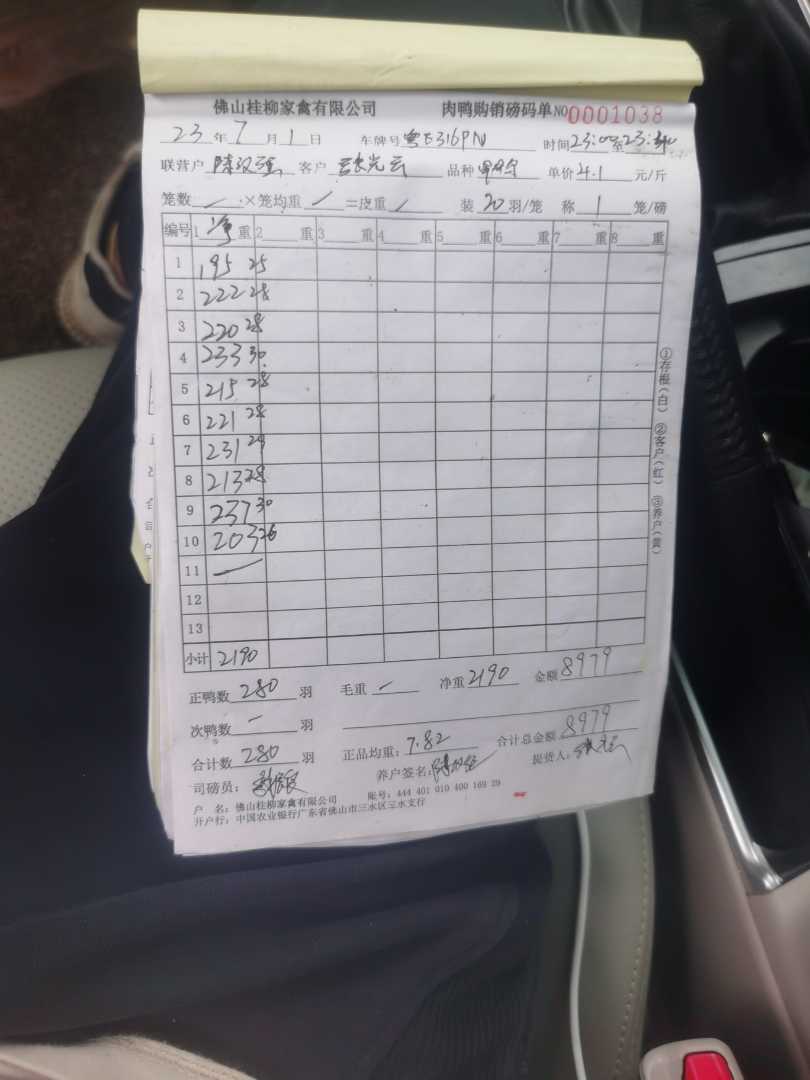 佛山桂柳家禽有限公司 肉鸭购销磅码单 NO0001038
23 年 7 月 1 日 车牌号 粤E316PN 时间 23:00至23:
联营户 陈汉强 客户 光云 品种 单价 4.1 元/斤
笼数 / ×笼均重 / =皮重 / 装 20 羽/笼 称 1 笼/磅
编号 1 净 重 2 重 3 重 4 重 5 重 6 重 7 重 8 重
1 195 25
2 222 28
3 220 28
4 233 30
5 215 28
6 221 28
7 231 29
8 213 28
9 237 30
10 203 26
11 —
12
13
小计 2190
正鸭数 280 羽 毛重 — 净重 2190 金额 8979
次鸭数 — 羽
合计数 280 羽 正品均重: 7.82 合计总金额 8979
司磅员: 养户签名: 提货人:
户 名: 佛山桂柳家禽有限公司 账号: 444 401 010 400 169 29
开户行: 中国农业银行广东省佛山市三水区三水支行
①存根(白) ②客户(红) ③养户(黄)